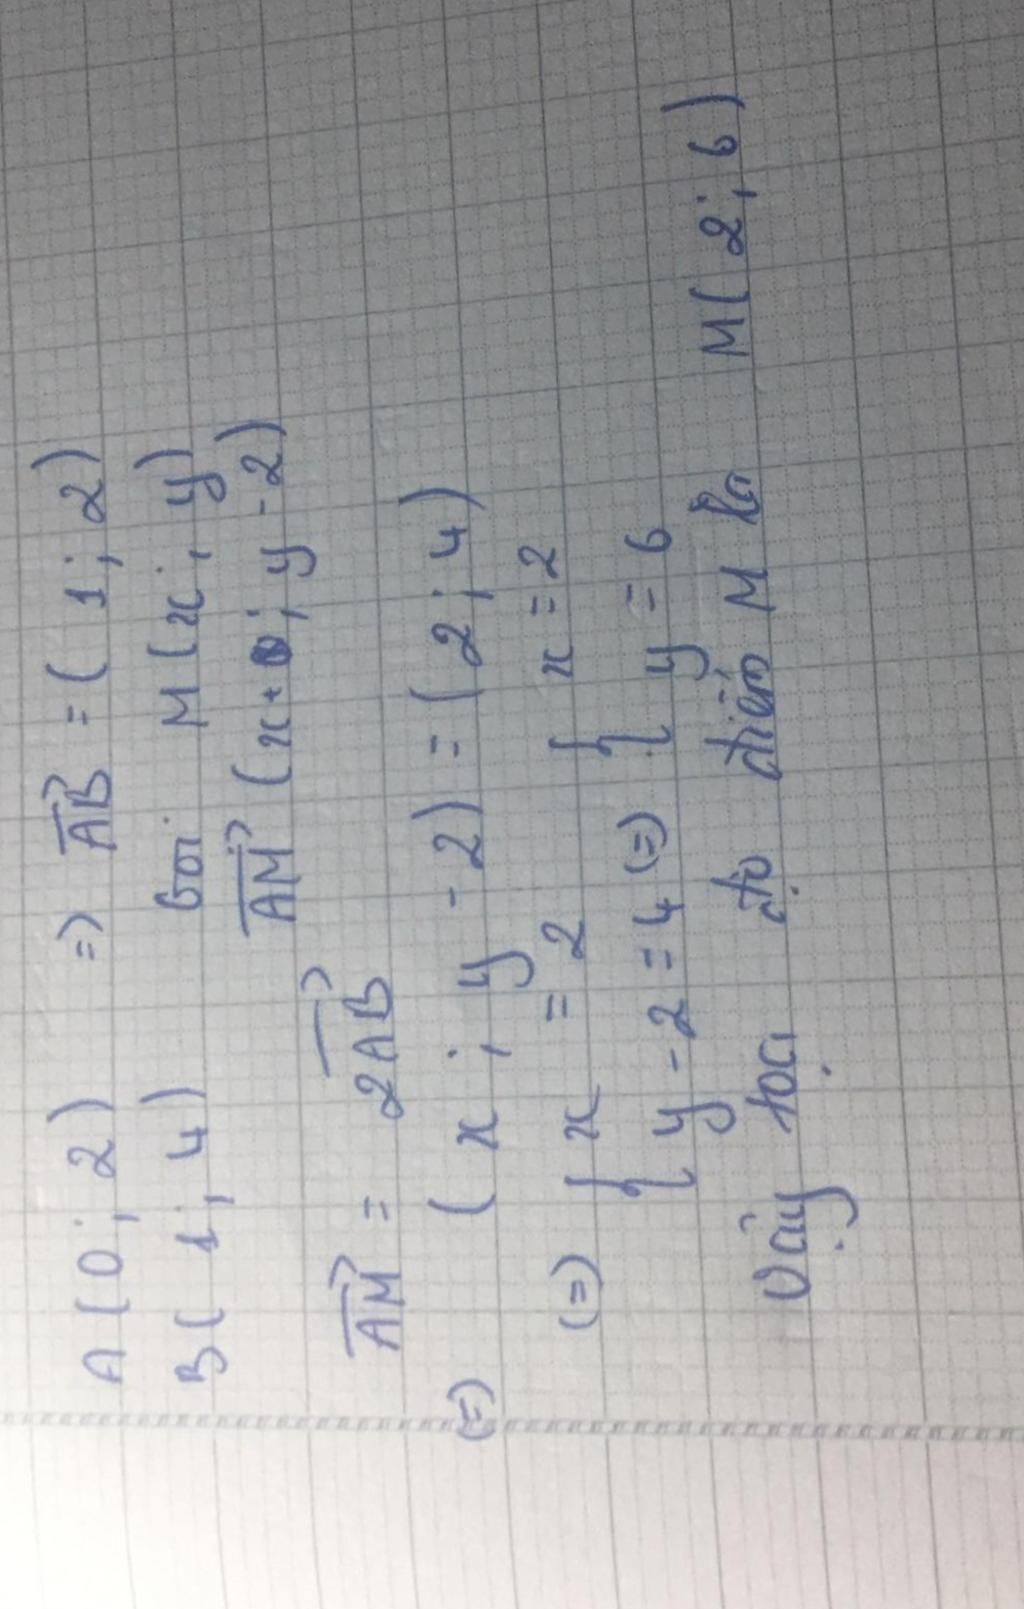 A(0; 2) => AB = (1; 2)
B(1; 4) với M(x; y)
AM (x+0; y-2)
AM = 2AB
(=) (x; y-2) = (2; 4)
(=) { x = 2 { x = 2
{ y-2 = 4 (=) { y = 6
Vậy toạ độ điểm M là M(2; 6)